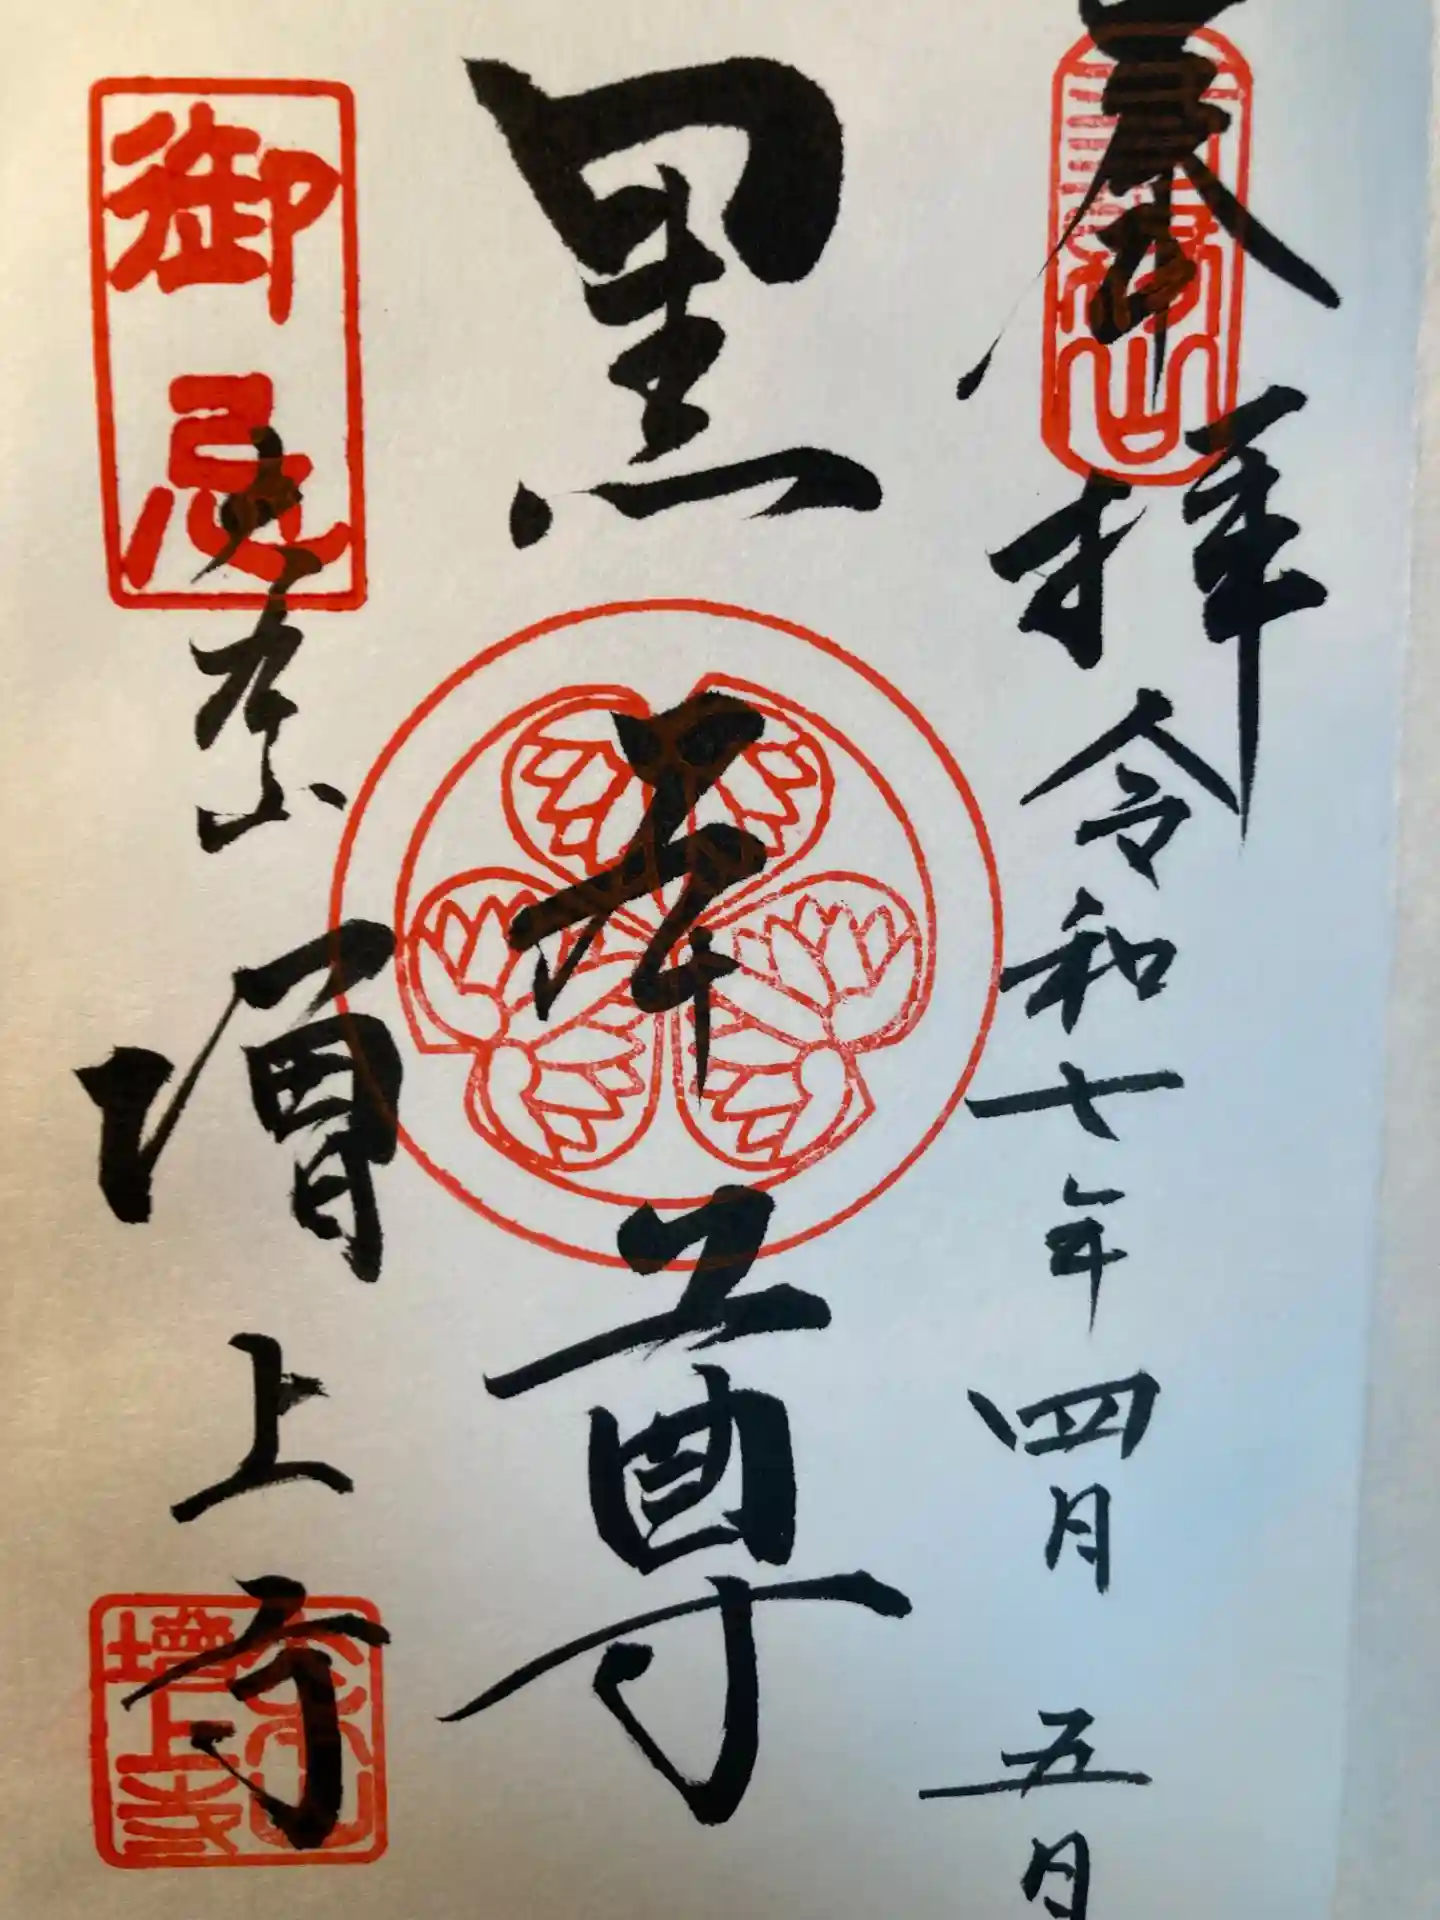 奉拝 令和七年四月五日
三縁山
黒本尊
御忌
大本山 増上寺
大本山
増上寺